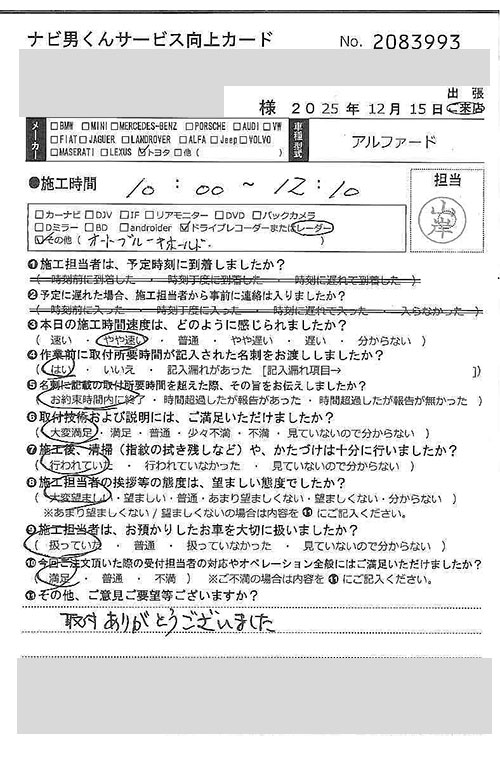 ナビ男くんサービス向上カード No. 2083993
出 張
様 2025年12月15日 ご来店
メーカー □BMW □MINI □MERCEDES-BENZ □PORSCHE □AUDI □VW
□FIAT □JAGUER □LANDROVER □ALFA □Jeep □VOLVO
□MASERATI □LEXUS ☑トヨタ □他 ( )
車種型式 アルファード
●施工時間 10 : 00 ~ 12 : 10
担当
山岸
□カーナビ □DJV □IF □リアモニター □DVD □バックカメラ
□Dミラー □BD □androider ☑ドライブレコーダーまたはレーダー
☑その他 ( オートブレーキホールド. )
❶施工担当者は、予定時刻に到着しましたか?
( 時刻前に到着した ・ 時刻丁度に到着した ・ 時刻に遅れて到着した )
❷予定に遅れた場合、施工担当者から事前に連絡は入りましたか?
( 時刻前に入った ・ 時刻丁度に入った ・ 時刻に遅れて入った ・ 入らなかった )
❸本日の施工時間速度は、どのように感じられましたか?
( 速い ・ やや速い ・ 普通 ・ やや遅い ・ 遅い ・ 分からない )
❹作業前に取付所要時間が記入された名刺をお渡ししましたか?
( はい ・ いいえ ・ 記入漏れがあった [記入漏れ項目→ ])
❺名刺に記載の取付所要時間を超えた際、その旨をお伝えしましたか?
( お約束時間内に終了 ・ 時間超過したが報告があった ・ 時間超過したが報告が無かった )
❻取付技術および説明には、ご満足いただけましたか?
( 大変満足 ・ 満足 ・ 普通 ・ 少々不満 ・ 不満 ・ 見ていないので分からない )
❼施工後、清掃(指紋の拭き残しなど)や、かたづけは十分に行いましたか?
( 行われていた ・ 行われていなかった ・ 見ていないので分からない )
❽施工担当者の挨拶等の態度は、望ましい態度でしたか?
( 大変望ましい ・ 望ましい ・ 普通 ・ あまり望ましくない ・ 望ましくない ・ 分からない )
※あまり望ましくない / 望ましくないの場合は内容を⓫にご記入ください。
❾施工担当者は、お預かりしたお車を大切に扱いましたか?
( 扱っていた ・ 普通 ・ 扱っていなかった ・ 見ていないので分からない )
❿今回ご注文頂いた際の受付担当者の対応やオペレーション全般にはご満足いただけましたか?
( 満足 ・ 普通 ・ 不満 ) ※ご不満の場合は内容を⓫にご記入ください。
⓫その他、ご意見ご要望等ございますか?
取付ありがとうございました